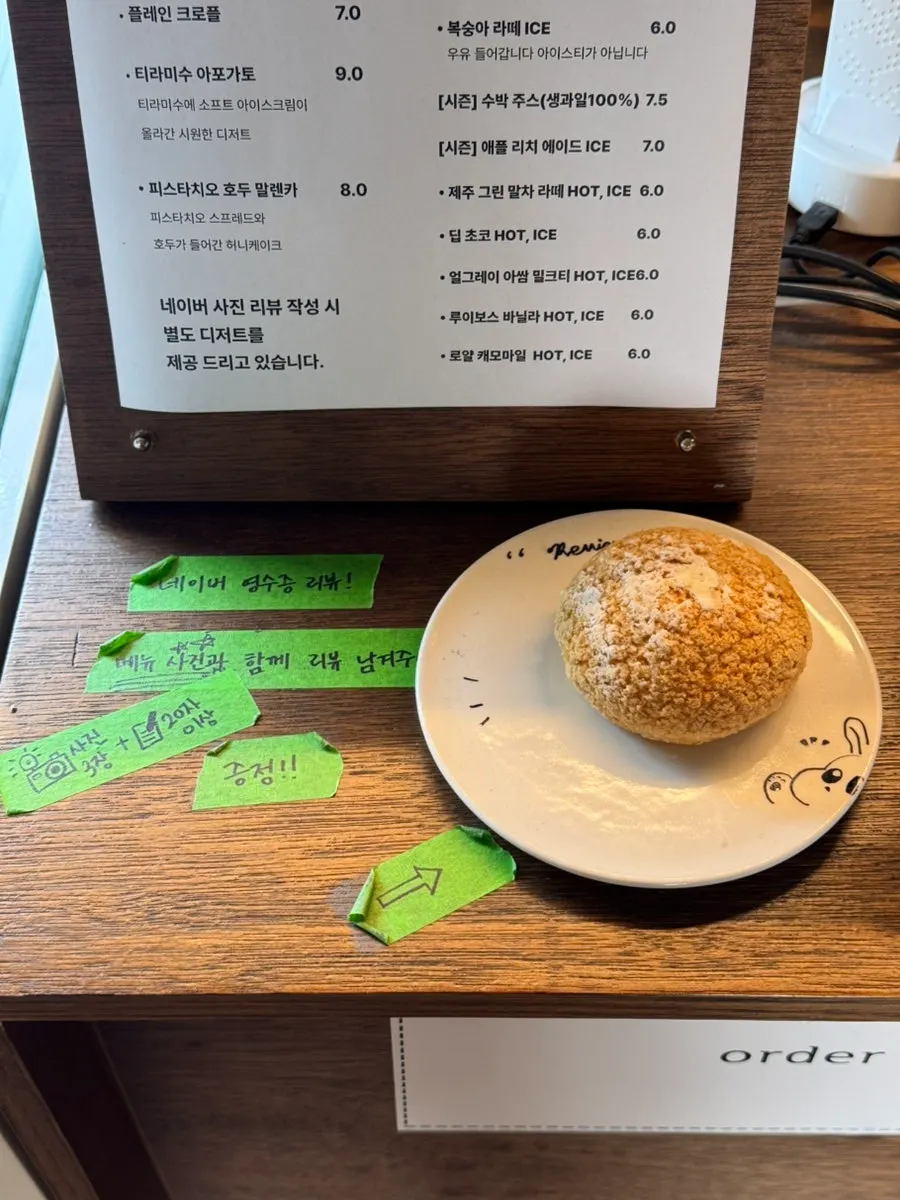 · 플레인 크로플 7.0
· 티라미수 아포가토 9.0
티라미수에 소프트 아이스크림이
올라간 시원한 디저트
• 피스타치오 호두 말렌카 8.0
피스타치오 스프레드와
호두가 들어간 허니케이크
네이버 사진 리뷰 작성 시
별도 디저트를
제공 드리고 있습니다.
• 복숭아 라떼 ICE 6.0
우유 들어갑니다 아이스티가 아닙니다
[시즌] 수박 주스(생과일100%) 7.5
[시즌] 애플 리치 에이드 ICE 7.0
• 제주 그린 말차 라떼 HOT, ICE 6.0
• 딥 초코 HOT, ICE 6.0
• 얼그레이 아쌈 밀크티 HOT, ICE6.0
• 루이보스 바닐라 HOT, ICE 6.0
• 로얄 캐모마일 HOT, ICE 6.0
네이버 영수증 리뷰!
메뉴 사진과 함께 리뷰 남겨주
사진 3장 + 20자 이상
증정!!
order